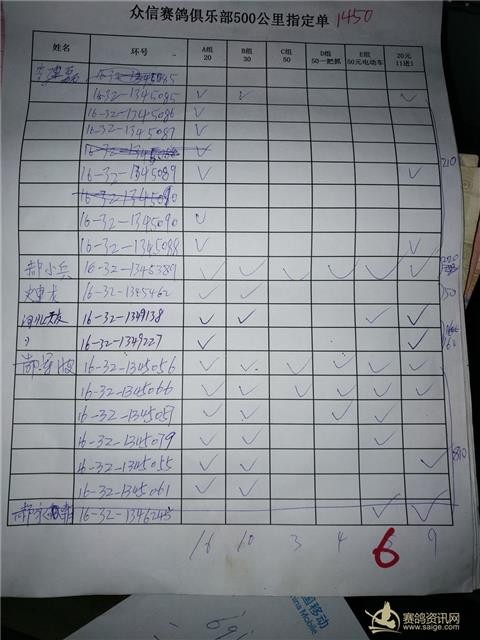 众信赛鸽俱乐部500公里指定单 1450
姓名 环号 A组 20 B组 30 C组 50 D组 50一把抓 E组 50元电动车 20元 11进1
16-32-1345085 ✓ ✓ ✓
16-32-1345086 ✓
16-32-1345087 ✓
16-32-1345089 ✓ ✓
210
16-32-1345090 ✓
16-32-1345088 ✓ ✓
郝小兵 16-32-1345389 ✓ ✓ ✓ ✓ ✓ ✓
16-32-1345462 ✓ ✓
150
16-32-1349138 ✓ ✓ ✓ ✓
16-32-1349227 ✓ ✓
16-32-1345056 ✓ ✓ ✓ ✓ ✓ ✓
16-32-1345066 ✓ ✓ ✓ ✓ ✓ ✓
16-32-1345057 ✓ ✓ ✓ ✓
16-32-1345079 ✓ ✓ ✓
16-32-1345055 ✓ ✓ ✓
16-32-1345061 ✓ ✓
16-32-1346245 ✓ ✓
16 10 3 4 6 9
中国移动
China Mobile
赛鸽资讯网
www.saige.com